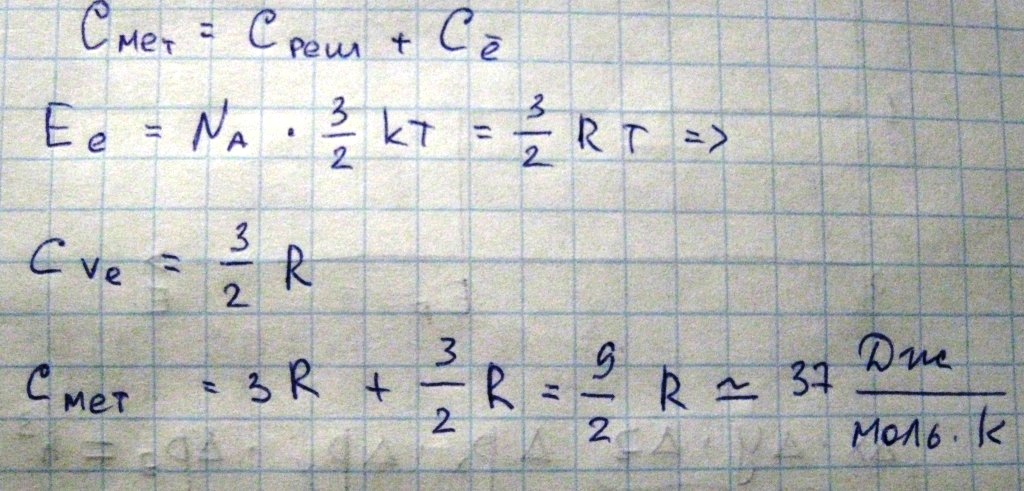 C мет = C реш + C ē
E e = N A · 3/2 kT = 3/2 R T =>
C v e = 3/2 R
C мет = 3 R + 3/2 R = 9/2 R ≃ 37 Дж/моль · k